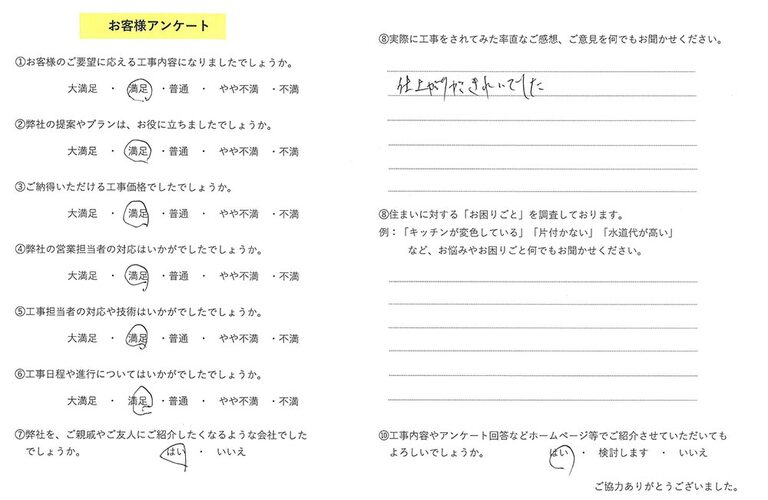 お客様アンケート
①お客様のご要望に応える工事内容になりましたでしょうか。
大満足 ・ 満足 ・普通 ・ やや不満 ・不満
②弊社の提案やプランは、お役に立ちましたでしょうか。
大満足 ・ 満足 ・普通 ・ やや不満 ・不満
③ご納得いただける工事価格でしたでしょうか。
大満足 ・ 満足 ・普通 ・ やや不満 ・不満
④弊社の営業担当者の対応はいかがでしたでしょうか。
大満足 ・ 満足 ・普通 ・ やや不満 ・不満
⑤工事担当者の対応や技術はいかがでしたでしょうか。
大満足 ・ 満足 ・普通 ・ やや不満 ・不満
⑥工事日程や進行についてはいかがでしたでしょうか。
大満足 ・ 満足 ・普通 ・ やや不満 ・不満
⑦弊社を、ご親戚やご友人にご紹介したくなるような会社でした
でしょうか。 はい ・ いいえ
⑧実際に工事をされてみた率直なご感想、ご意見を何でもお聞かせください。
仕上がりがきれいでした
⑧住まいに対する「お困りごと」を調査しております。
例：「キッチンが変色している」「片付かない」「水道代が高い」
など、お悩みやお困りごと何でもお聞かせください。
⑩工事内容やアンケート回答などホームページ等でご紹介させていただいても
よろしいでしょうか。 はい ・ 検討します ・ いいえ
ご協力ありがとうございました。